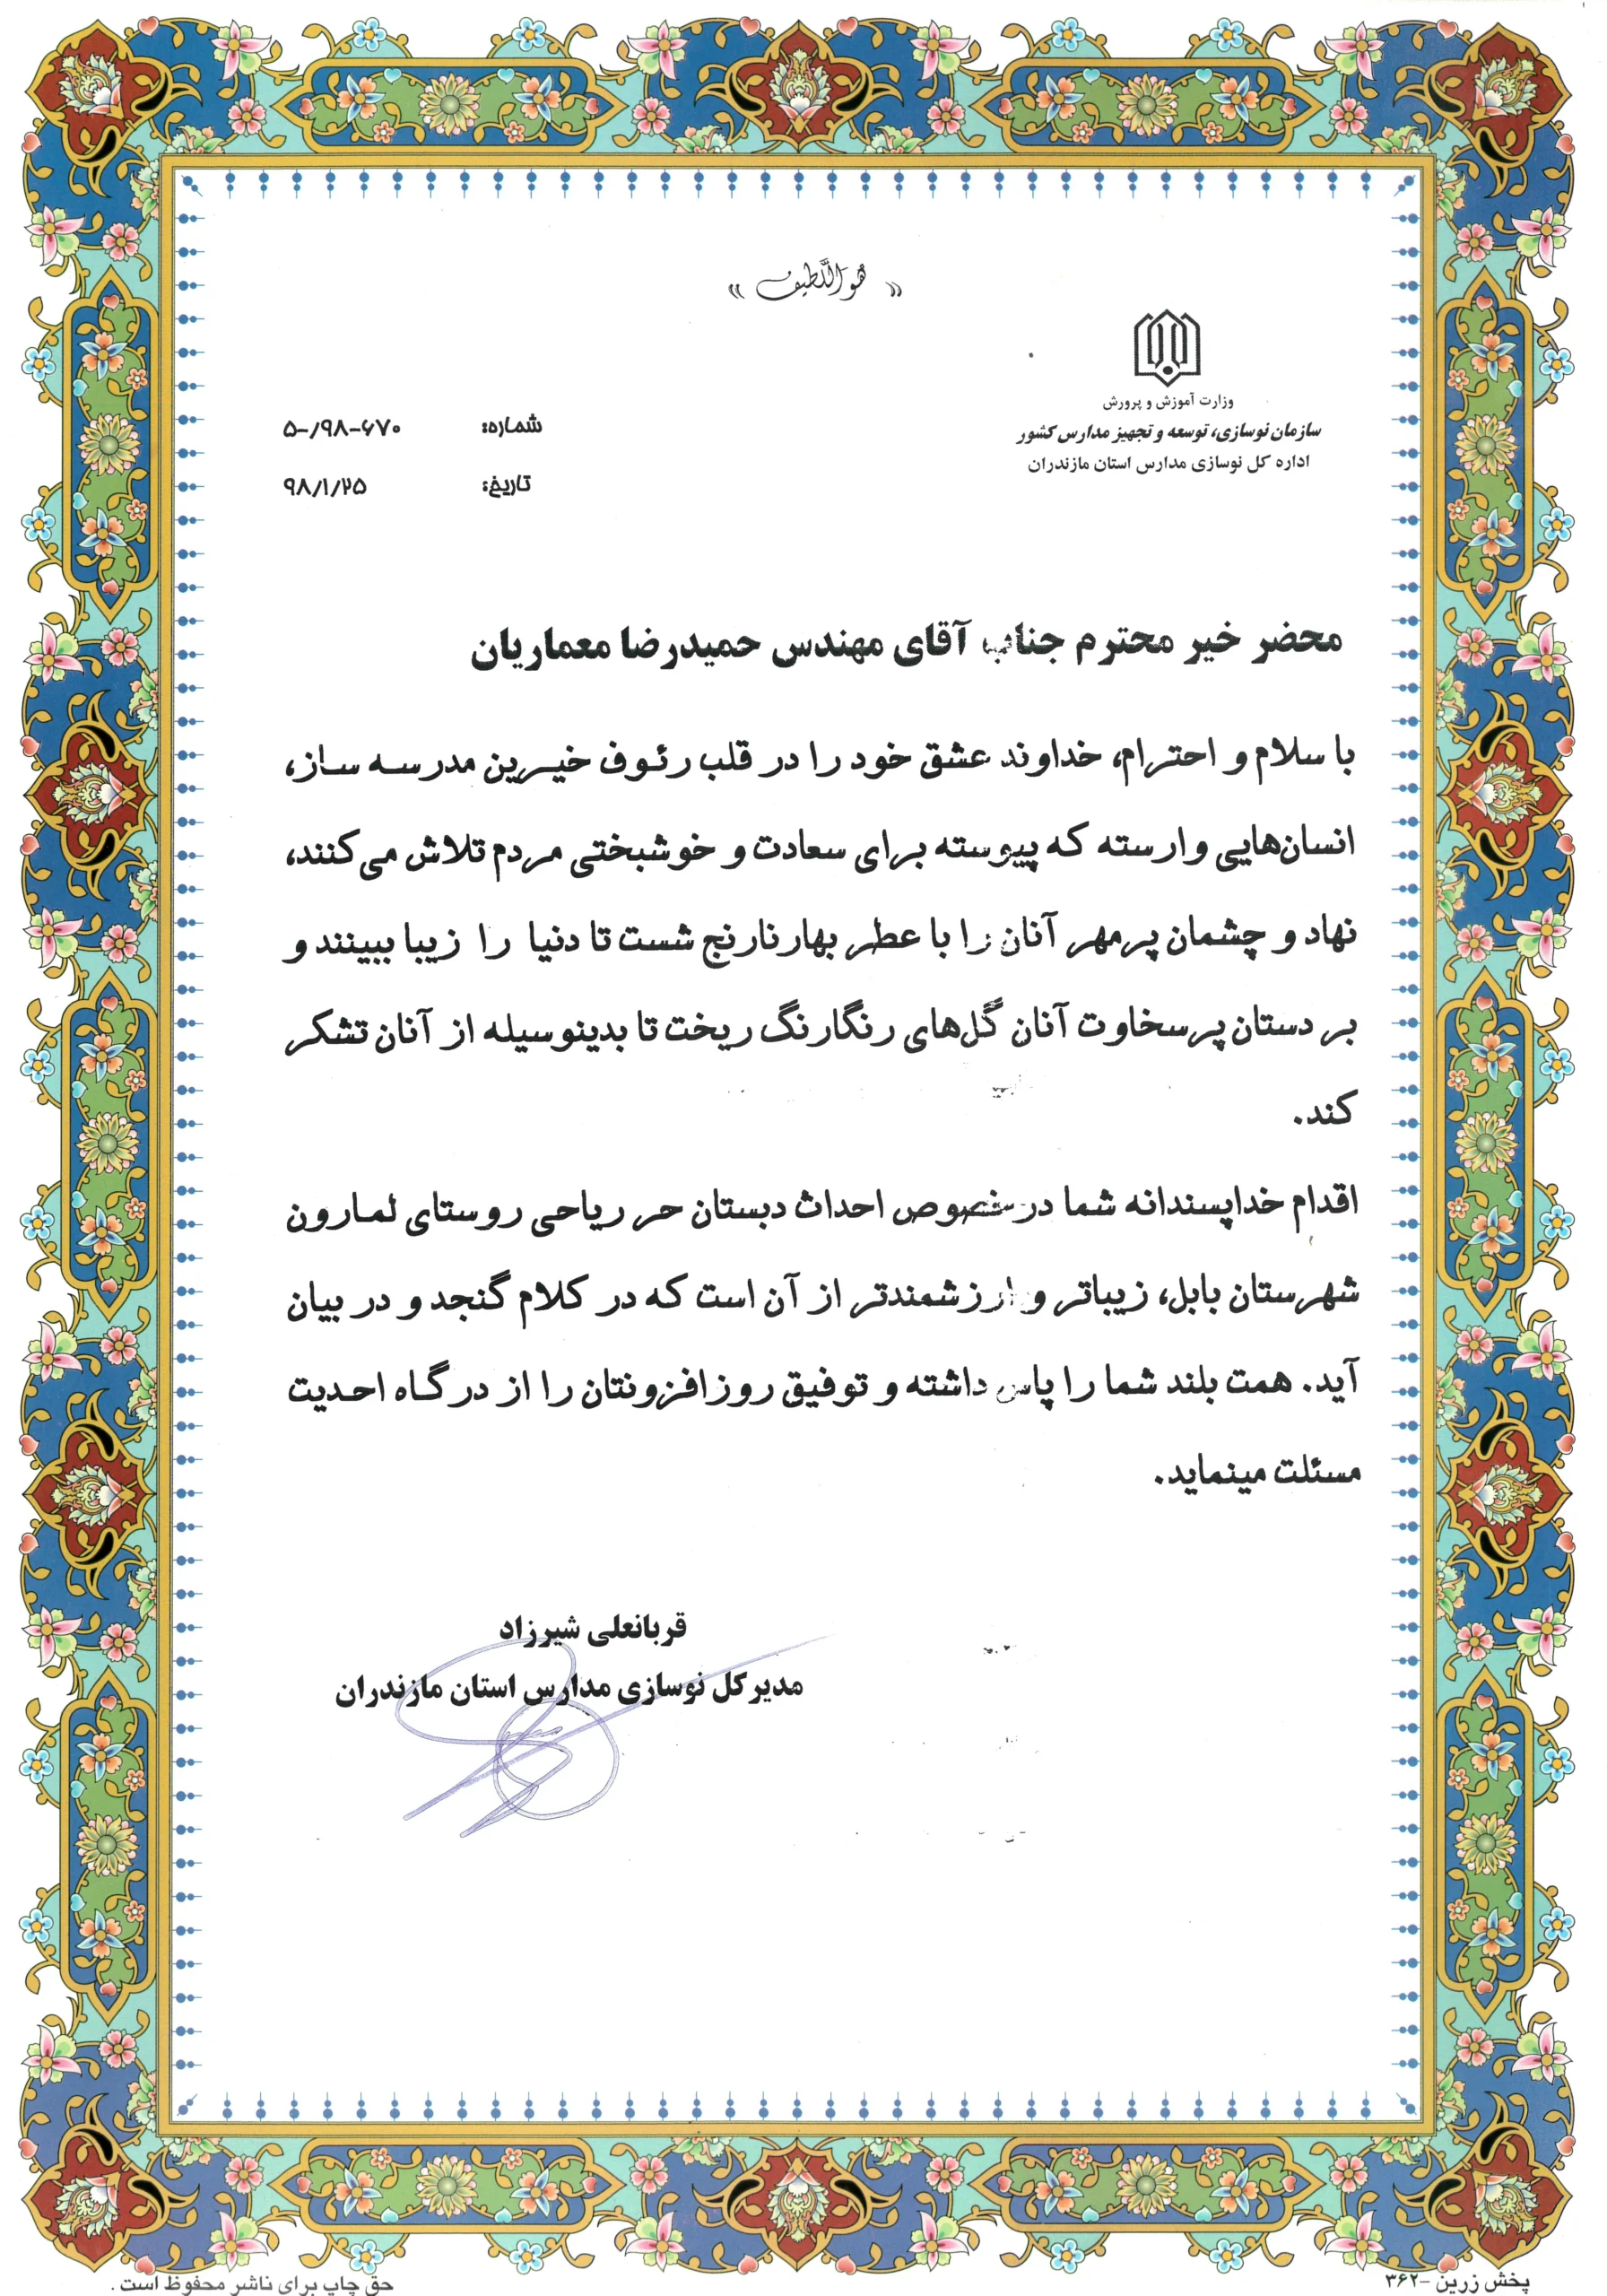 « هو اللطیف »
وزارت آموزش و پرورش
سازمان نوسازی، توسعه و تجهیز مدارس کشور
اداره کل نوسازی مدارس استان مازندران
شماره: ۵-/۹۸-۶۷۰
تاریخ: ۹۸/۱/۲۵
محضر خیر محترم جناب آقای مهندس حمیدرضا معماریان
با سلام و احترام، خداوند عشق خود را در قلب رئوف خیرین مدرسه ساز،
انسان‌هایی وارسته که پیوسته برای سعادت و خوشبختی مردم تلاش می‌کنند،
نهاد و چشمان پرمهر آنان را با عطر بهارنارنج شست تا دنیا را زیبا ببینند و
بر دستان پرسخاوت آنان گل‌های رنگارنگ ریخت تا بدینوسیله از آنان تشکر
کند.
اقدام خداپسندانه شما درخصوص احداث دبستان حر ریاحی روستای لمارون
شهرستان بابل، زیباتر و ارزشمندتر از آن است که در کلام گنجد و در بیان
آید. همت بلند شما را پاس داشته و توفیق روزافزونتان را از درگاه احدیت
مسئلت مینماید.
قربانعلی شیرزاد
مدیرکل نوسازی مدارس استان مازندران
پخش زرین -۳۶۲
حق چاپ برای ناشر محفوظ است .